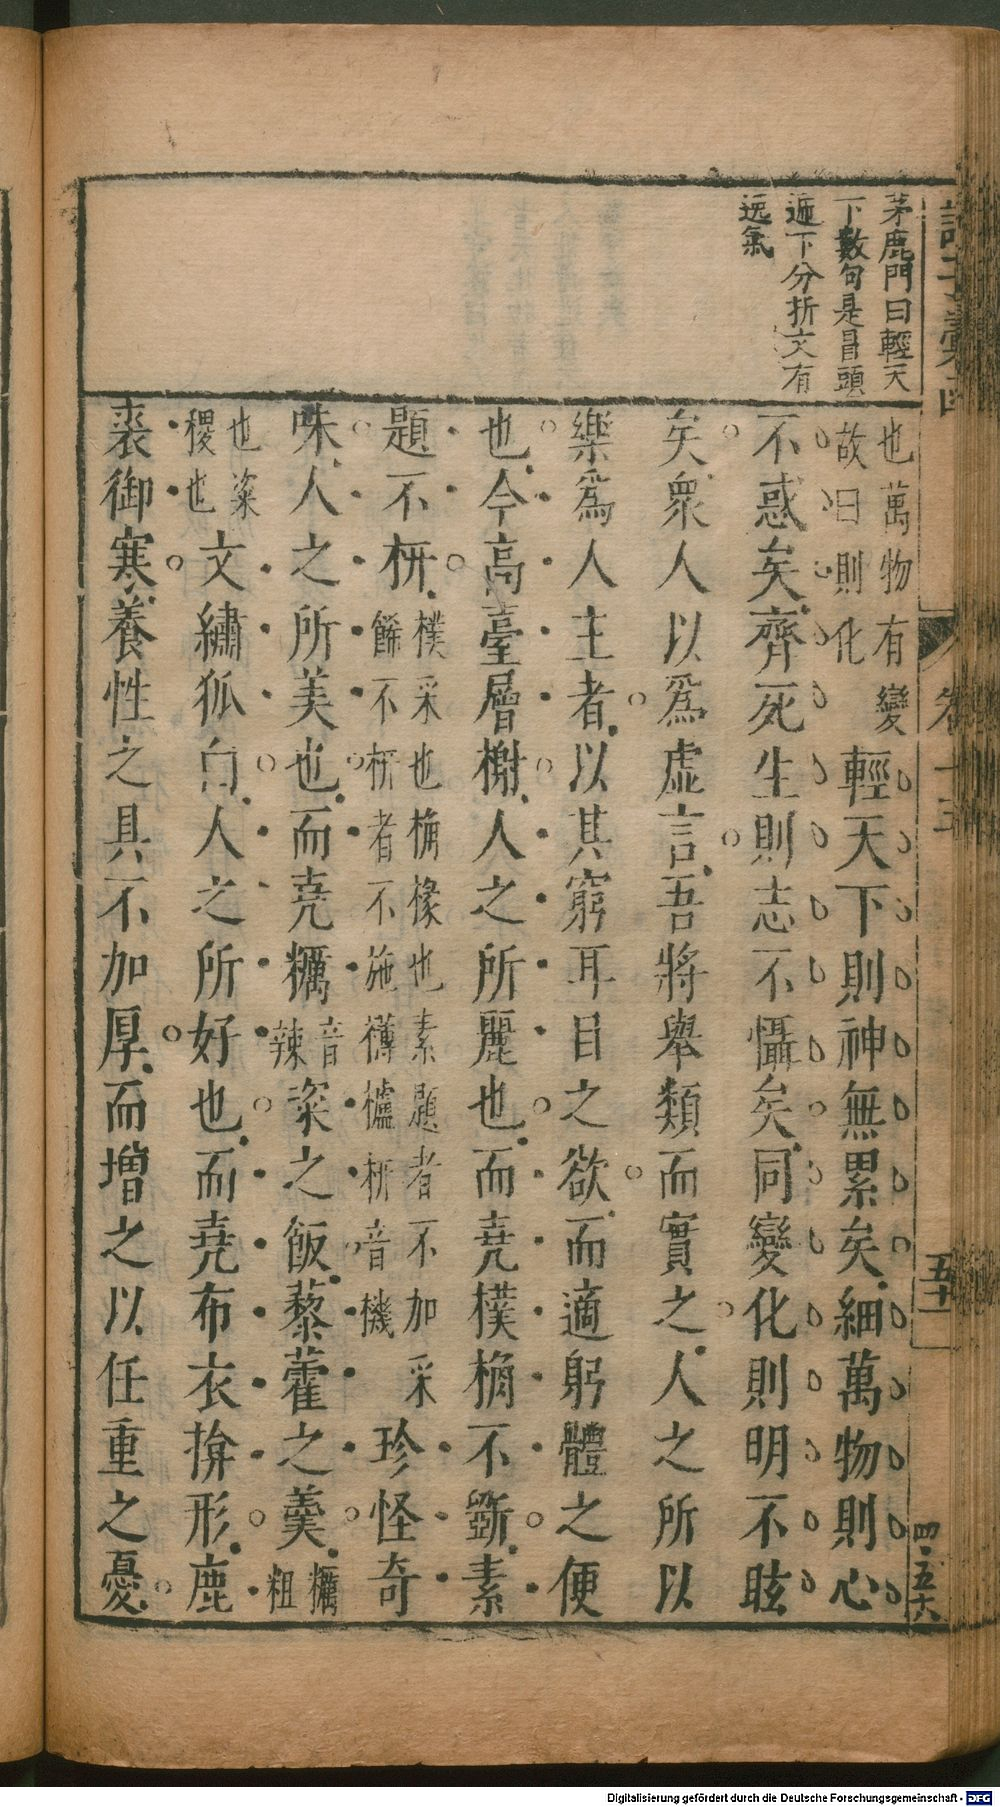 茅鹿門曰輕天
下數句是冒頭
遞下分折文有
逸氣
也萬物有變
故曰則化
輕天下則神無累矣細萬物則心
不惑矣齊死生則志不懾矣同變化則明不眩
矣衆人以爲虛言吾將舉類而實之人之所以
樂爲人主者以其窮耳目之欲而適躬體之便
也今高臺層榭人之所麗也而堯樸桷不斵素
題不枅
樸采也桷椽也素題者不加采
餙不枅者不施欂櫨枅音機
珍怪奇
味人之所美也而堯糲
音
辣
粢之飯藜藿之羹
糲
粗
也粢
稷也
文繡狐白人之所好也而堯布衣揜形鹿
裘御寒養性之具不加厚而增之以任重之憂
卷十五
五十一
四·五六
Digitalisierung gefördert durch die Deutsche Forschungsgemeinschaft - DFG